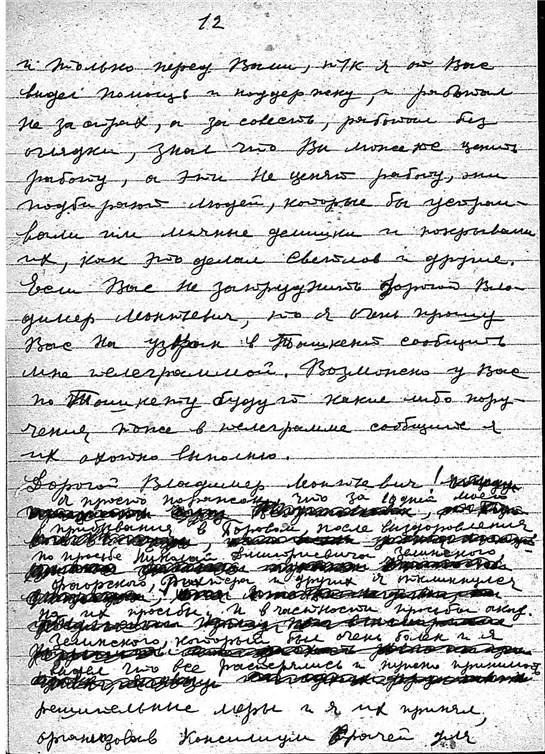 12
и только перед Вами, т/к я от Вас
видел помощь и поддержку, и работал
не за страх, а за совесть, работал без
оглядки, знал что Вы можете ценить
работу, а эти не ценят работу, они
подбирают людей, которые бы устраи-
вали их личные делишки и покрывали
их, как это делал Светлов и другие.
Если Вас не затруднит Дорогой Вла-
димер Леонтевич, то я очень прошу
Вас на в Ташкент сообщить
мне телеграммой. Возможно у Вас
по Ташкенту будут какие либо пору-
чения, тоже в телеграмме сообщите я
их охотно выполню.
Дорогой Владимер Леонтевич!
Я просто поражен, что за моего
пребывания в Боровом, после выздоровления
по просьбе Николай Димитриевича Зелинского,
и других я откликнулся
на их просьбы. И в частности просьбы акад.
Зелинского, который был очень болен и я
видел что все растерялись и нужно принимать
решительные меры и я их принял,
организовав Консилиум врачей для